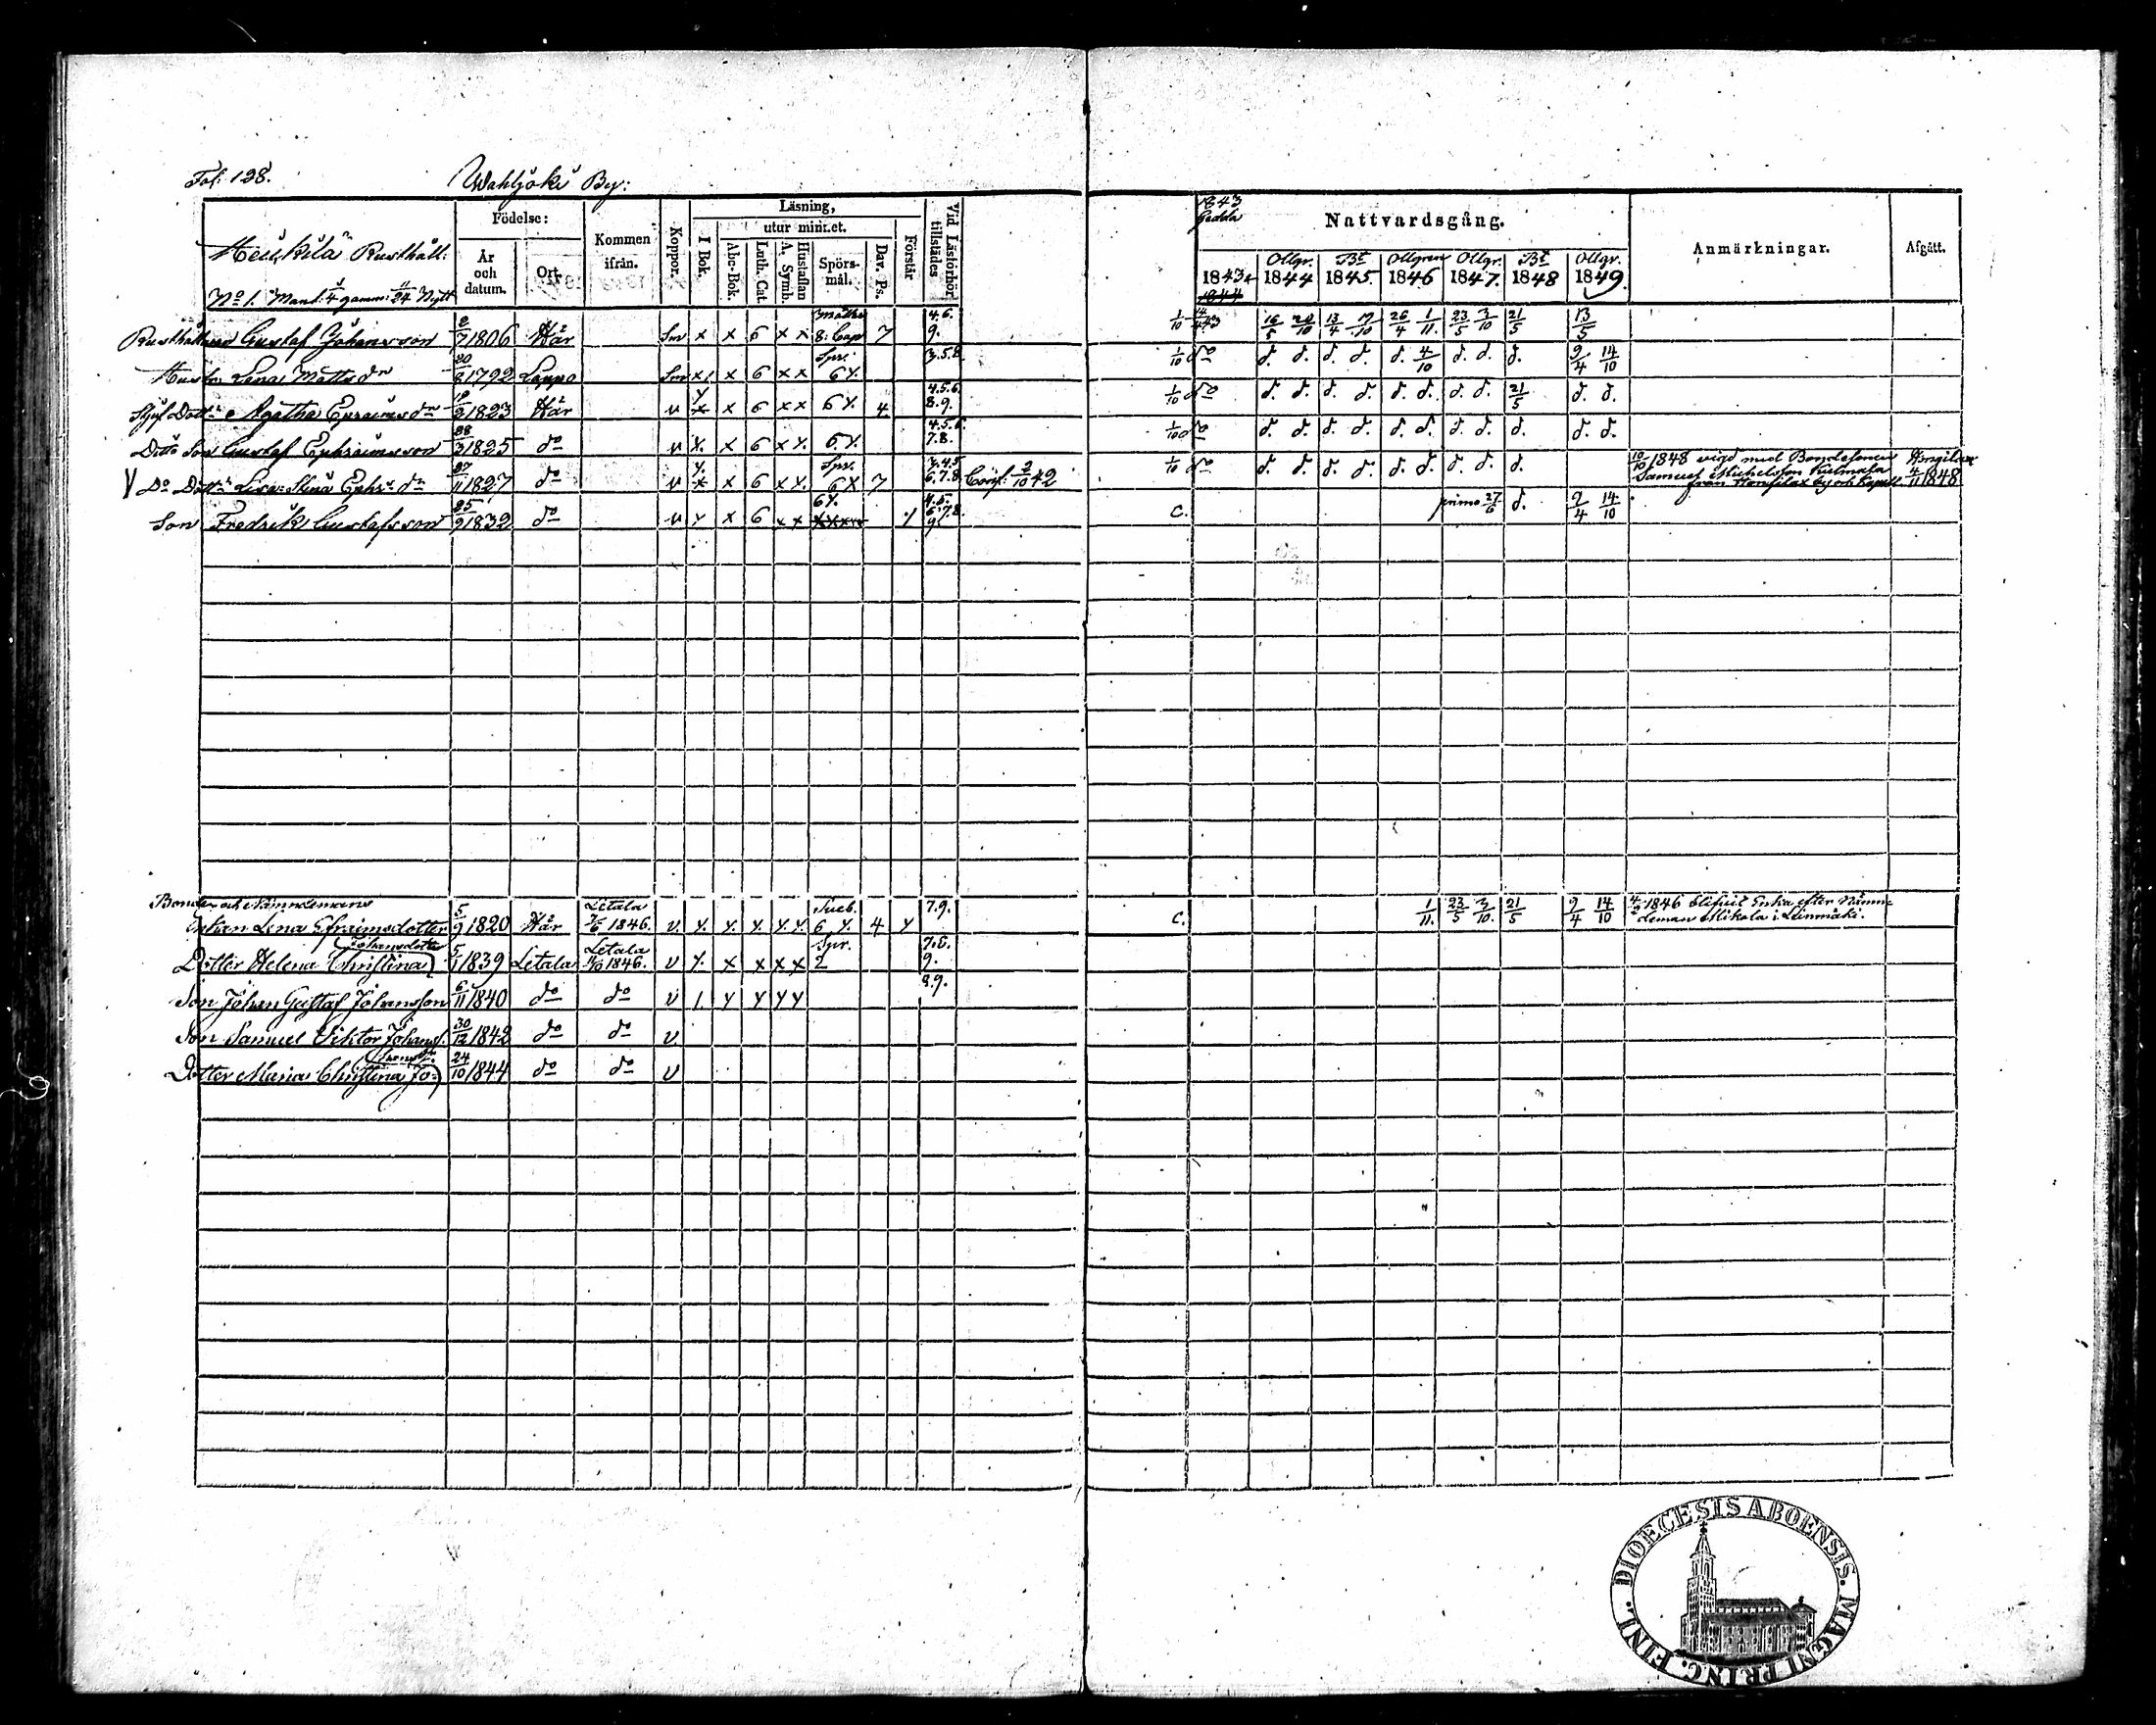 Fol: 138.
Wahljoki By:
Födelse:
Kommen ifrån.
Koppor.
Läsning,
utur minnet.
I Bok.
Abc-Bok.
Luth. Cat.
Hustaflan A. Symb.
Spörs-mål.
Dav. Ps.
Förstår
Vid Läsförhör tillstädes
År och datum.
Ort.
Heikkilä Rusthåll:
No 1. Mant: 1/4 gamm: 11/24 Nytt
1843
Gadda
Nattvardsgång.
Anmärkningar.
Afgått.
Ollgr. Bt Ollgren Ollgr. Bt Ollgr.
1843 1844 1845 1846 1847 1848 1849
1844
Rusthållaren Gustaf Johansson 2/7 1806 Här x x 6 x x 8. Cap 7 4.6. 9. 1/10 16/5 20/10 13/4 26/4 1/11. 23/5 3/10 21/5 13/5
Hustru Lena Matts dr 1792 Lappo x x 6 x x Spr. 6 y. 3.5.8. 1/10 do d. d. d. d. d. 4/10 d. d. d. 9/4 14/10
Dottr Agatha Epraims dr 1823 Här x x 6 x x 6 y. 4 4.5.6. 8.9. 1/10 do d. d. d. d. d. d. d. d. 21/5 d. d.
Ditto Son Gustaf Ephraimsson 28/3 1825 do x 6 x y. 6 y. 4.5.6. 7.8. 1/10 do d. d. d. d. d. d. d. d. d. d. d.
Do Dottr Lisa Stina Ephr: dr 27/11 1827 do x x 6 x y. Spr. 6 x 7 3.4.5. 6.7.8. Conf: 2/10 42 1/10 do d. d. d. d. d. d. d. d. d. 10/10 1848 vigd med Bondesonen 4/11 1848
Samuel Michelsson
från
Son Fredrik Gustafsson 25/9 1832 do x 6 x x 6 y. 4.5. 6.7.8. 9 C. primo 27/6 d. 9/4 14/10
Bonde och Nämndemans
Enkan Lena Efraimsdotter 5/9 1820 Här Letala 1846. v. y. y. y. y. y. Sueb. 6 y. 4 y 7.9. C. 1/11. 23/5 3/10. 21/5 9/4 14/10 4/2 1846 Enka efter Nämndeman Mikola i Leinmäki.
Dotter Helena Christina Johansdotter 5/1 1839 Letala Letala 1846. v y. x x x x Spr. 2 7.8. 9.
Son Johan Gustaf Johansson 6/11 1840 do do v 1. y y y y 8.9.
Son Samuel Viktor Johanss. 30/12 1842 do do v
Dotter Maria Christina Jo- 24/10 1844 do do v
DIOECESIS ABOENSIS. MAGNI PRINC. FINL.